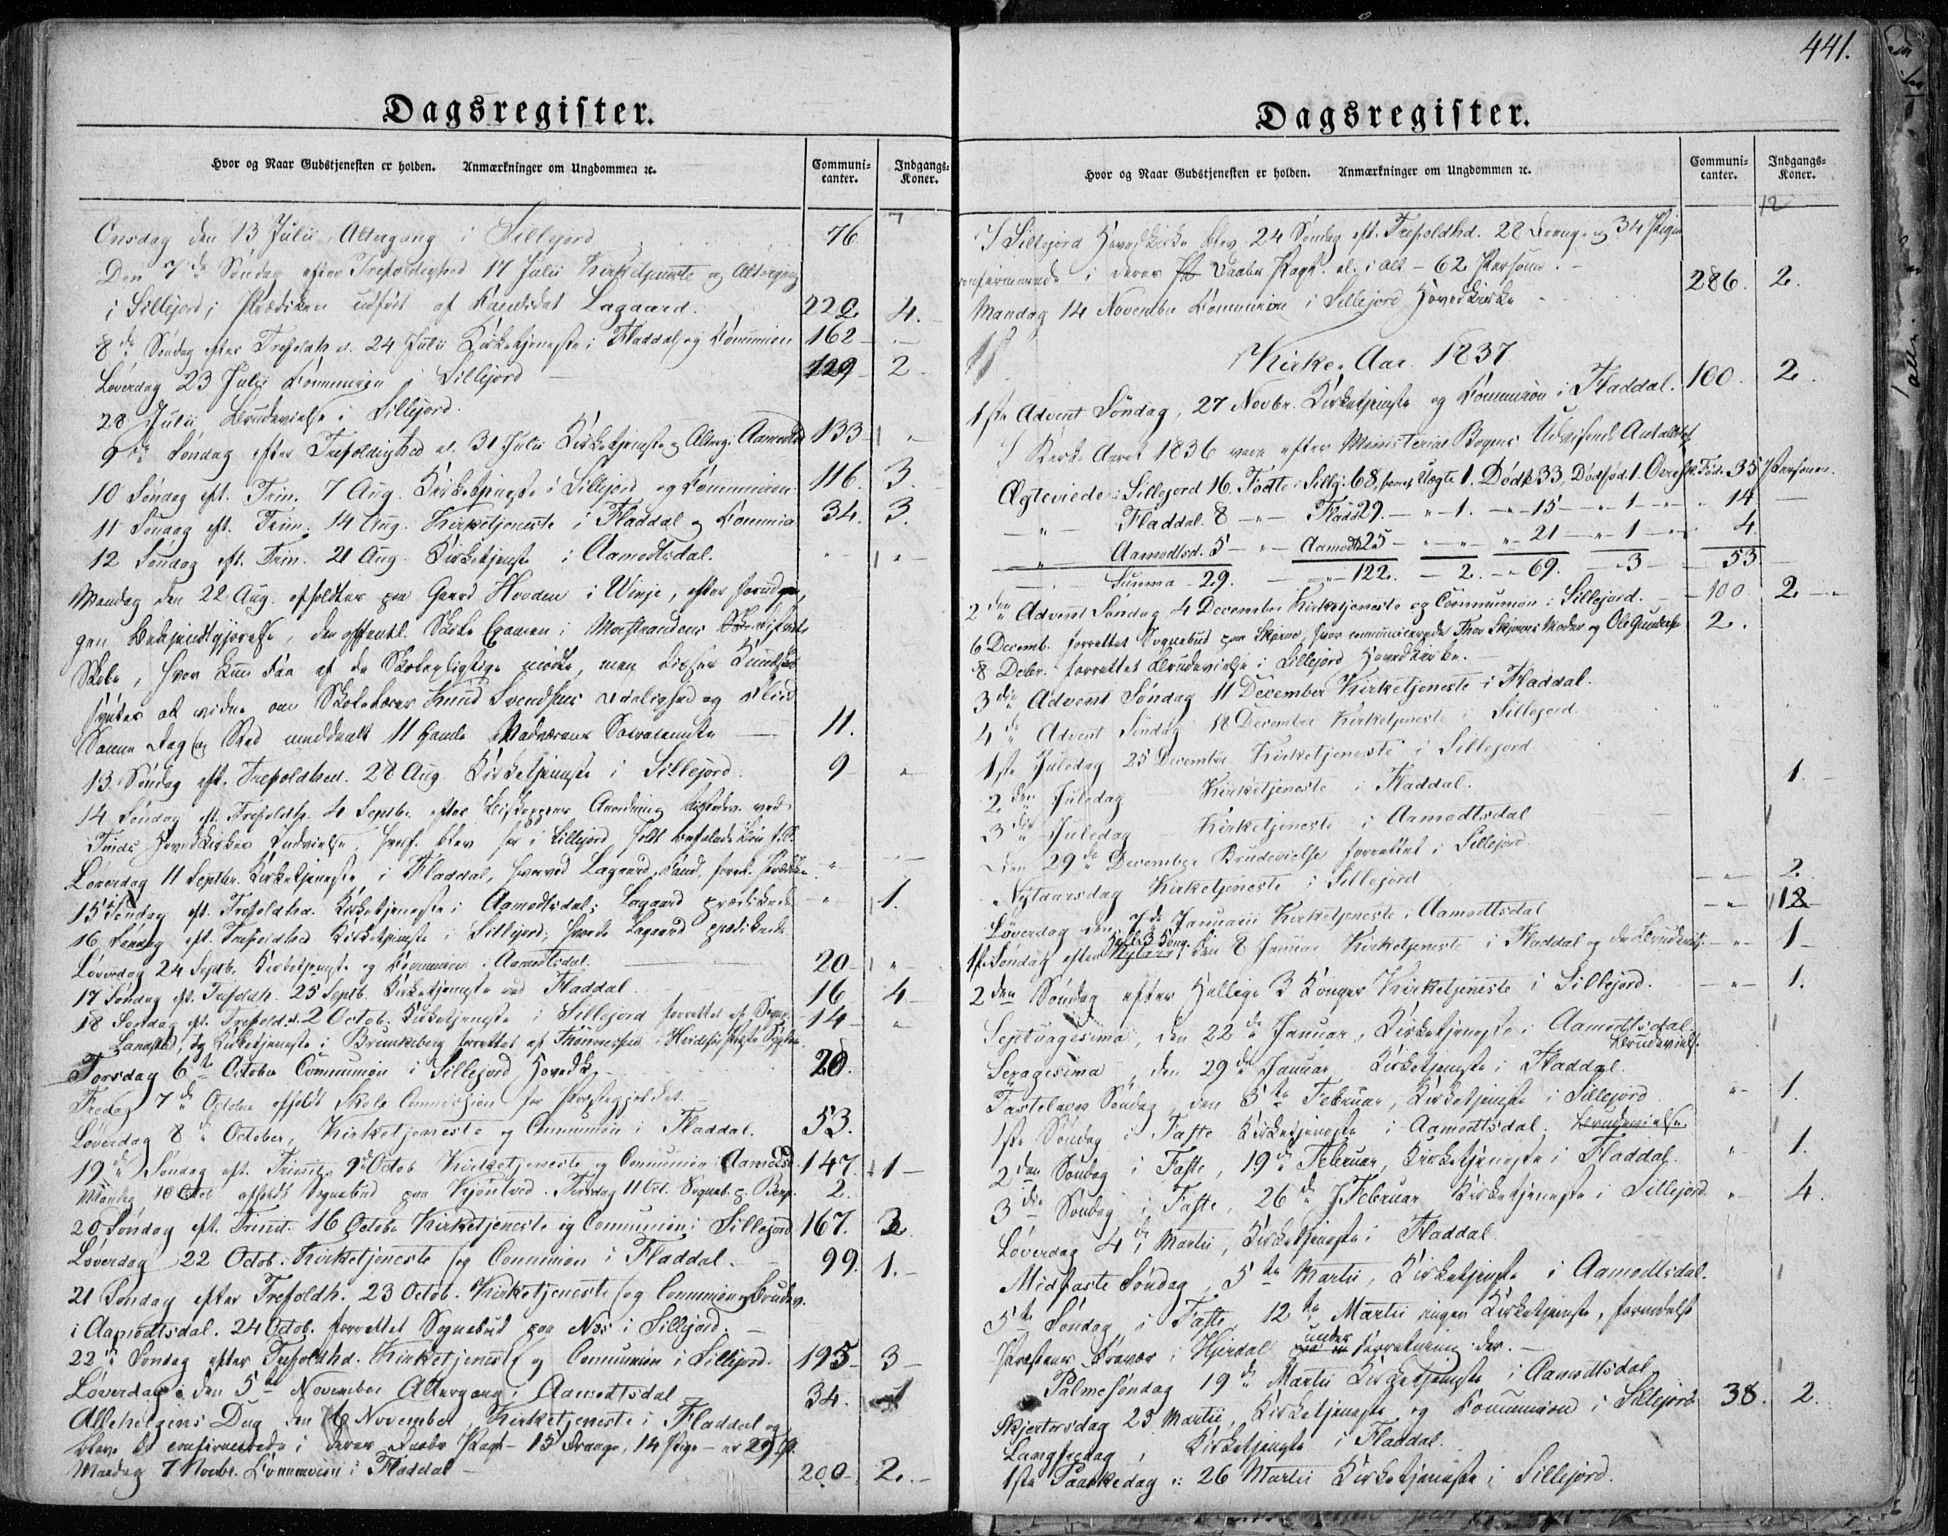 Dagsregister.
Hvor og Naar Gudstjenesten er holden. Anmærkninger om Ungdommen ɪc.
Communi-canter.
Indgangs-Koner.
7
Onsdag den 13 Julii Altergang i Sillejord 76
Den 7de Søndag efter Trefoldighed 17 Julii Kirketjeneste og Altergang
i Sillejord; Prædiken udført af Candidat Lagaard. 222 4.
8de Søndag efter Trefoldh. d. 24 Julii Kirketjeneste i Fladdal og Communion 162
Løverdag 23 Julii Communion i Sillejord 129 2
28 Julii Brudevielse i Sillejord.
9de Søndag efter Trefoldighed d. 31 Julii Kirketjeneste og Alterg. i Aamodtsd 133
10 Søndag eft. Trin. 7 Aug. Kirketjeneste i Sillejord og Communion 116. 3.
11 Søndag eft. Trin. 14 Aug. Kirketjeneste i Fladdal og Communion 34. 3.
12 Søndag eft. Trin. 21 Aug. Kirketjeneste i Aamodtsdal.
Mandag den 22 Aug. afholdtes paa Gaard Hovden i Winje, efter
gen Bekjendtgjørelse, den offentl. Skole Examen i
Skole, hvor kun faa af de Skolepligtige mødte, men
at vidne om Skolelærer Knud Svendsens Duelighed og Flid
Samme Dag og Sted meddeelt 11 Gamle Sacramentet 11.
13 Søndag eft. Trefoldhed. 28 Aug. Kirketjeneste i Sillejord. 9
14 Søndag eft. Trefoldh. 4 Septb. efter Biskoppens Anordning ved
Tinds Hovedkirkes Indvielse, blev her i Sillejord holdt
Løverdag 11 Septbr. Kirketjeneste i Fladdal, hvorved Lagaard, Cand.
15 Søndag eft. Trefoldhd. Kirketjeneste i Aamodtsdal; Lagaard prædikede 1.
16 Søndag eft. Trefoldhed Kirketjeneste i Sillejord; Lagaard prædikede
Løverdag 24 Septb. Kirketjeneste og Communion i Aamodtsdal. 20
17 Søndag eft. Trefoldh. 25 Septb. Kirketjeneste ved Fladdal. 16 4
18 Søndag eft. Trefold. d. 2 Octob. Kirketjeneste i Sillejord forrettet af
Landstad, og Kirketjeneste i Brunkeberg forrettet af 14
Torsdag 6te October Communion i Sillejord Hovedk. 20.
Fredag 7de October afholdt Skole Commission for Præstegjeldet.
Løverdag 8de October, Kirketjeneste og Communion i Fladdal. 53.
19de Søndag eft. Trinit. 9de Octob Kirketjeneste og Communion i Aamodtsd. 147. 1
Mandag 10 Octob afholdt Sognebud paa Torsdag 11 Oct. Sogneb. p. 2.
20 Søndag eft. Trinit. 16 Octobr Kirketjeneste og Communion i Sillejord 167. 3
Løverdag 22 Octob. Kirketjeneste og Communion i Fladdal. 99. 1.
21 Søndag efter Trefoldh. 23 Octob. Kirketjeneste og Communion og Brudev.
i Aamodtsdal. 24 Octob. forrettet Sognebud paa Næs i Sillejord.
22de Søndag efter Trefoldhd. Kirketjeneste og Communion i Sillejord. 195 3
Løverdag den 5te November Altergang i Aamodtsdal 34.
Allehelgens Dag den 6 November, Kirketjeneste i Fladdal og
bleve de confirmerede i deres Daabs Pagt 15 Drenge, 14 Pige er 29
Mandag 7 Novbr. Communion i Fladdal 200 2.
441.
Dagsregister.
Hvor og Naar Gudstjenesten er holden. Anmærkninger om Ungdommen ɪc.
Communi-canter.
Indgangs-Koner.
12
I Sillejord Hovedkirke blev 24 Søndag eft. Trefoldhd. 28 Drenge og 34 Piger
confirmerede i deres Daabs Pagt. el. i alt – 62 Personer. 286. 2.
Mandag 14 November Communion i Sillejord Hovedkirke
Kirke-Aar 1837
1ste Advent Søndag, 27 Novbr. Kirketjeneste og Communion i Fladdal. 100. 2.
I Kirke Aaret 1836 vare efter Ministerial Bogens Udvisende Antallet af
Ægteviede i Sillejord 16. Fødte i Sillj. 68, Uægte 1. Døde 33, Dødfød. 1. 35 Personer.
Fladdal. 8 Fladd. 29. 1. 15 1 14
Aamodtsd. 5 Aamodts. 25 21 1 4
Summa 29. 122. 2. 69. 3 53
2den Advent Søndag 4 December Kirketjeneste og Communion i Sillejord. 100 2
6 Decemb. forrettet Sognebud paa hvor communicerede Moder og Ole 2.
8 Decbr. forrettet Brudevielse i Sillejord Hovedkirke.
3die Advent Søndag 11 December Kirketjeneste i Fladdal.
4de Advent Søndag 18 December Kirketjeneste i Sillejord.
1ste Juledag 25 December Kirketjeneste i Sillejord
2den Juledag Kirketjeneste i Fladdal. 1.
3die Juledag Kirketjeneste i Aamodtsdal
Den 29de December Brudevielse forrettet i Sillejord.
Nytaarsdag Kirketjeneste i Sillejord 2.
Løverdag den 7de Januarii Kirketjeneste i Aamodtsdal
1ste Søndag efter den 8 Januar Kirketjeneste i Fladdal og 1
2den Søndag efter Hellige 3 Konger Kirketjeneste i Sillejord. 1.
Septuagesima, den 22de Januar, Kirketjeneste i Aamodtsdal
Brudevielse
Sexagesima, den 29de Januar Kirketjeneste i Fladdal.
Fastelavns Søndag, den 5te Februar, Kirketjeneste i Sillejord 1.
1ste Søndag i Faste Kirketjeneste i Aamodtsdal. Brudevielse.
2den Søndag i Faste, 19de Februar, Kirketjeneste i Fladdal. 1.
3die Søndag i Faste, 26de Februar Kirketjeneste i Sillejord 4.
Løverdag 4de Martii, Kirketjeneste i Fladdal.
Midfaste Søndag, 5te Martii, Kirketjeneste i Aamodtsdal.
5te Søndag i Faste, 12te Martii ingen Kirketjeneste, formedelst
Præstens Fravær i Hjerdal under Forretning der.
Palmesøndag 19de Martii Kirketjeneste i Aamodtsdal
Skjertorsdag 23 Martii, Kirketjeneste og Communion i Sillejord 38. 2.
Langfredag, Kirketjeneste i Fladdal.
1ste Paaskedag 26 Martii Kirketjeneste i Sillejord.